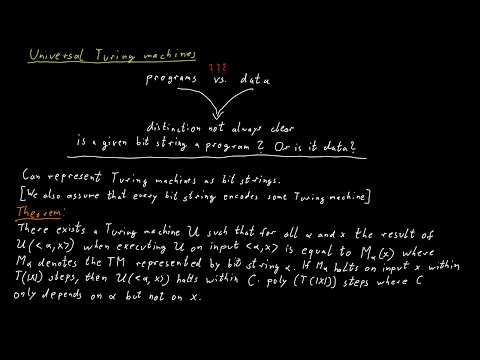 Universal Turing machines
???
programs vs. data
distinction not always clear
is a given bit string a program? Or is it data?
Can represent Turing machines as bit strings.
[We also assume that every bit string encodes some Turing machine]
Theorem:
There exists a Turing machine U such that for all α and x the result of
U(<α,x>) when executing U on input <α,x> is equal to Mα(x) where
Mα denotes the TM represented by bit string α. If Mα halts on input x within
T(|x|) steps, then U(<α,x>) halts within C. poly (T(|x|)) steps where C
only depends on α but not on x.